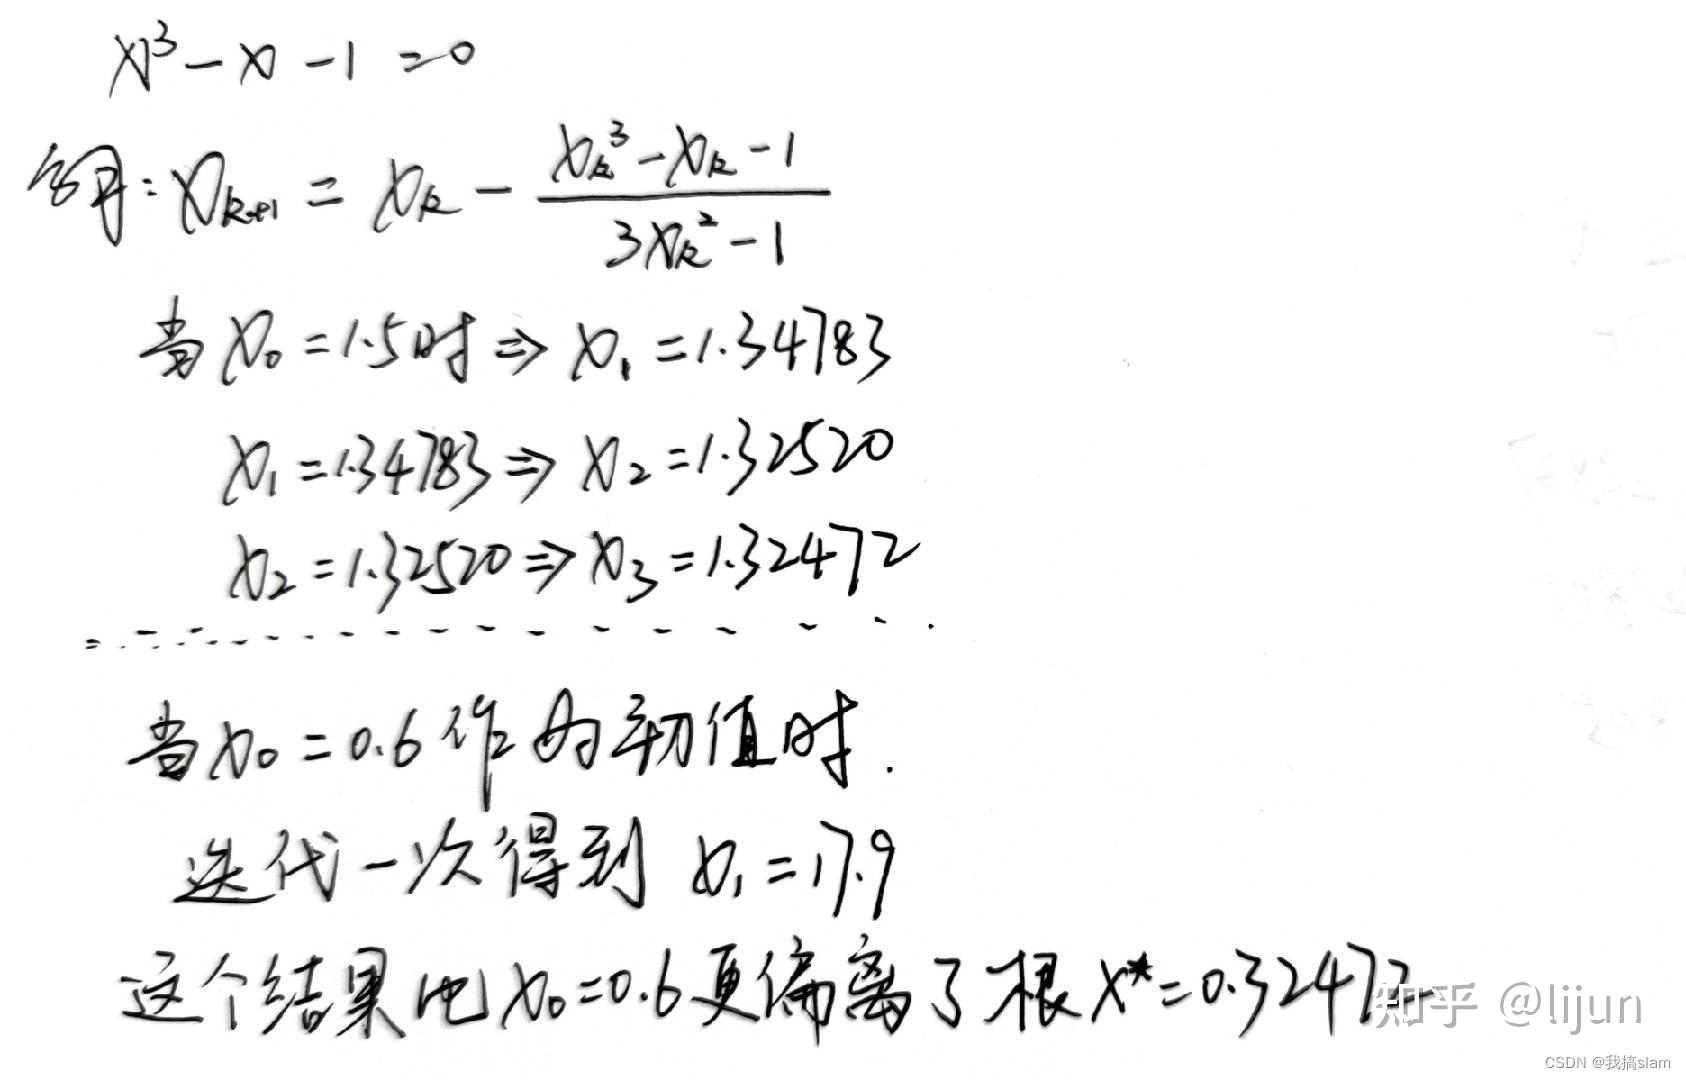 x³-x-1=0
解: xₖ₊₁ = xₖ - (xₖ³-xₖ-1)/(3xₖ²-1)
当x₀=1.5时⇒x₁=1.34783
x₁=1.34783⇒x₂=1.32520
x₂=1.32520⇒x₃=1.32472
当x₀=0.6作为初值时.
迭代一次得到 x₁=17.9
这个结果比x₀=0.6更偏离了根x*=0.32472
知乎 @lijun
CSDN @我搞slam